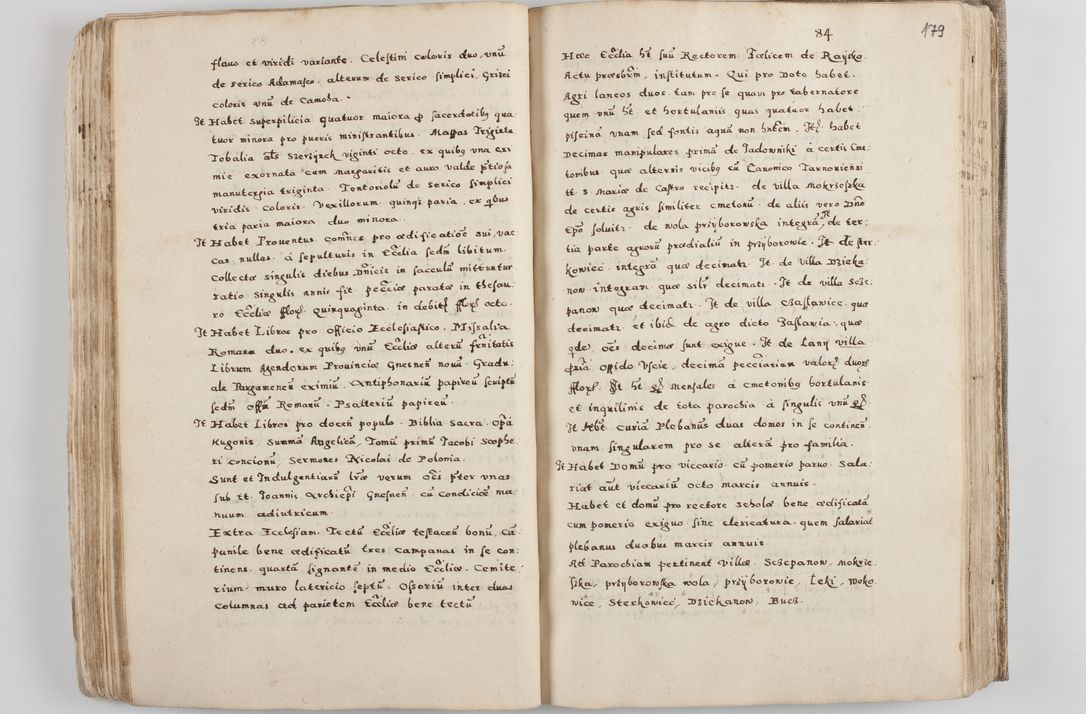 flauo et viridi variante. Celestini coloris duo, vnũ
de serico Adamasco. alterum de serico simplici, Grisei
coloris vnũ de Camoha.
It Habet superpilicia quatuor maiora ꝓ sacerdotibꝰ qua
tuor minora pro pueris ministrantibus. Mappas Triginta
Tobalia als Szerzÿnek viginti octo. ex quibꝰ vna exi
mie exornata cum margaritis et auro valde p̃tiosa
manutergia triginta. Tentoriolũ de serico simplici
viridis coloris. Vexillorum quinqꝫ paria, ex qbus
tria paria maiora duo minora.
It Habet Prouentus coẽs pro ædificatiõe sui, vac
cas nullas. à sepulturis in Ecclia scdm libitum
Collectæ singulis diebus Dñicis in sacculũ mittuntur
ratio singulis annis fit. pecciæ paratæ in thesau
ro Eccliæ fflor quinquaginta in debitꝭ fflor octo.
It Habet Libros pro Officio Ecclesiastico. Missalia
Romana duo, ex quibꝰ vnũ Eccliæ alterũ fr̃nitatis
Librum Agendorum Prouinciæ Gnesneñ nouũ. Gradu
ale Pargameneũ eximiũ. Antiphonariũ papireũ scriptũ
scdm offũ Romanũ. Psalteriũ papireũ.
It Habet Libros pro doceñ populo. Biblia Sacra. Opa
Hugonis. Summã Angelicã, Tomũ primũ Jacobi Scophe
ri concionũ, Sermones Nicolai de Polonia.
Sunt et Indulgentiarũ lr̃æ verum oẽs p̃ter vnas
sub tt. Joannis Archiepi Gnesneñ. cũ condiciõe ma
nuum adiutricum.
Extra Ecclesiam. Tectũ Eccliæ testaceũ bonũ, Cã
panile bene ædificatũ tres campanas in se con
tinens quartã signantẽ in medio Eccliæ. Cemite
rium muro latericio septũ. Ossoriũ inter duas
columnas ad parietem Eccliæ bene tectũ
84
179
Hæc Ecclia ht suũ Rectorem Fælicem de Raysko
Actu præsbrm, institutum. Qui pro Dote habet.
Agri laneos duos tam pro se quam pro tabernatore
quem vnũ ht et hortulaniis quas quatuor habet
piscinã vnam sed fontis aquã non hñtem. It habet
Decimas manipulares primã de Jadowniki à certis Cme
tonibus quã alternis vicibꝰ cũ Canonico Tarnouiensi
tt S Mariæ de Castro recipit. de villa Mokrzeska
de certis agris similiter cmetonũ. de aliis vero Dño
Epo soluit. de wola przÿborowska integrã, It de ter
tia parte agrorũ prædialiũ in przÿborowie. It de ster
kowiec integrã quæ decimat. It de villa Dzieka
now integram quæ silr decimat. It de villa Szcze
panow quæ decimat. It de villa Czaslawice quæ
decimat. et ibid de agro dicto Zaslawia. quæ
qde oẽs decimæ sunt exiguæ. It de Lanÿ villa
ꝓria Oppido Vscie, decimã pecciariam valoris duorũ
fflor. It ht mensales à cmetonibꝰ hortulanis
et inquilinis de tota parochia à singulis vnũ
It Hbt Curiã Plebanus duas domos in se contineñ
vnam singularem pro se alterã pro familia.
It Habet Domũ pro viccario cũ pomerio paruo. Sala
riat aut viccariũ octo marcis annuis.
Habet et domũ pro rectore scholæ bene ædificatã
cum pomerio exiguo sine clericatura quem salariat
plebanus duabus marcis annuis.
Ad Parochiam pertinent villæ. Sczepanow, mokrze
ska, przÿborowska wola, przÿborowie, Leki, woko
wice, Sterkowiec, Dziekanow, Bucz.